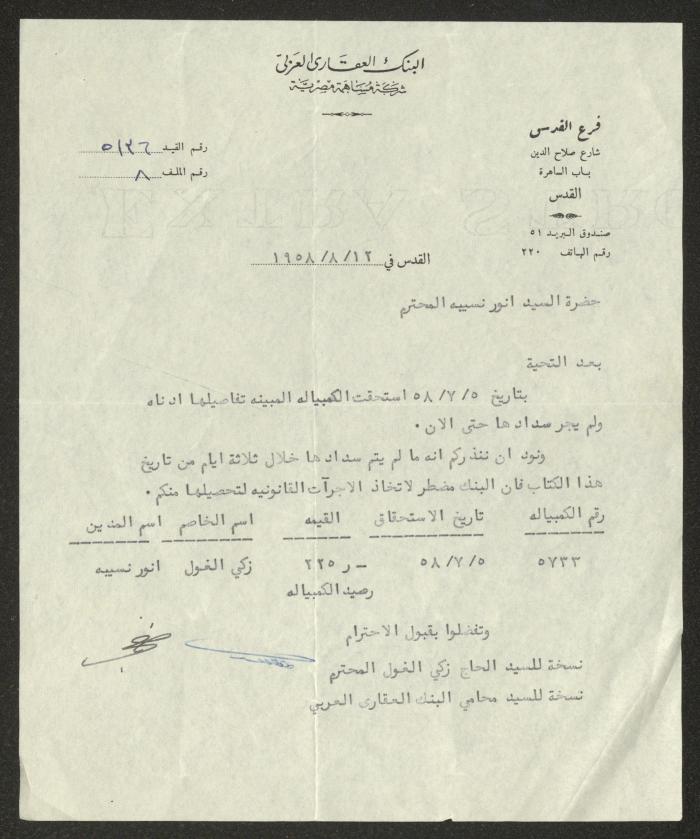 البنك العقاري العربي
شركة مساهمة مصرية
فرع القدس
شارع صلاح الدين
باب الساهرة
القدس
صندوق البريد ٥١
رقم الهاتف ٢٢٠
رقم القيد ٥/٣٦
رقم الملف ٨
القدس في ١٩٥٨/٨/١٢
حضرة السيد انور نسيبه المحترم
بعد التحية
بتاريخ ٥٨/٧/٥ استحقت الكمبياله المبينه تفاصيلها ادناه
ولم يجر سدادها حتى الان .
ونود ان ننذركم انه ما لم يتم سدادها خلال ثلاثة ايام من تاريخ
هذا الكتاب فان البنك مضطر لاتخاذ الاجرآت القانونيه لتحصيلها منكم .
رقم الكمبياله تاريخ الاستحقاق القيمه اسم الخاصم اسم المدين
٥٧٣٣ ٥٨/٧/٥ ٢٢٥ر- زكي الغول انور نسيبه
رصيد الكمبياله
وتفضلوا بقبول الاحترام
نسخة للسيد الحاج زكي الغول المحترم
نسخة للسيد محامي البنك العقارى العربي